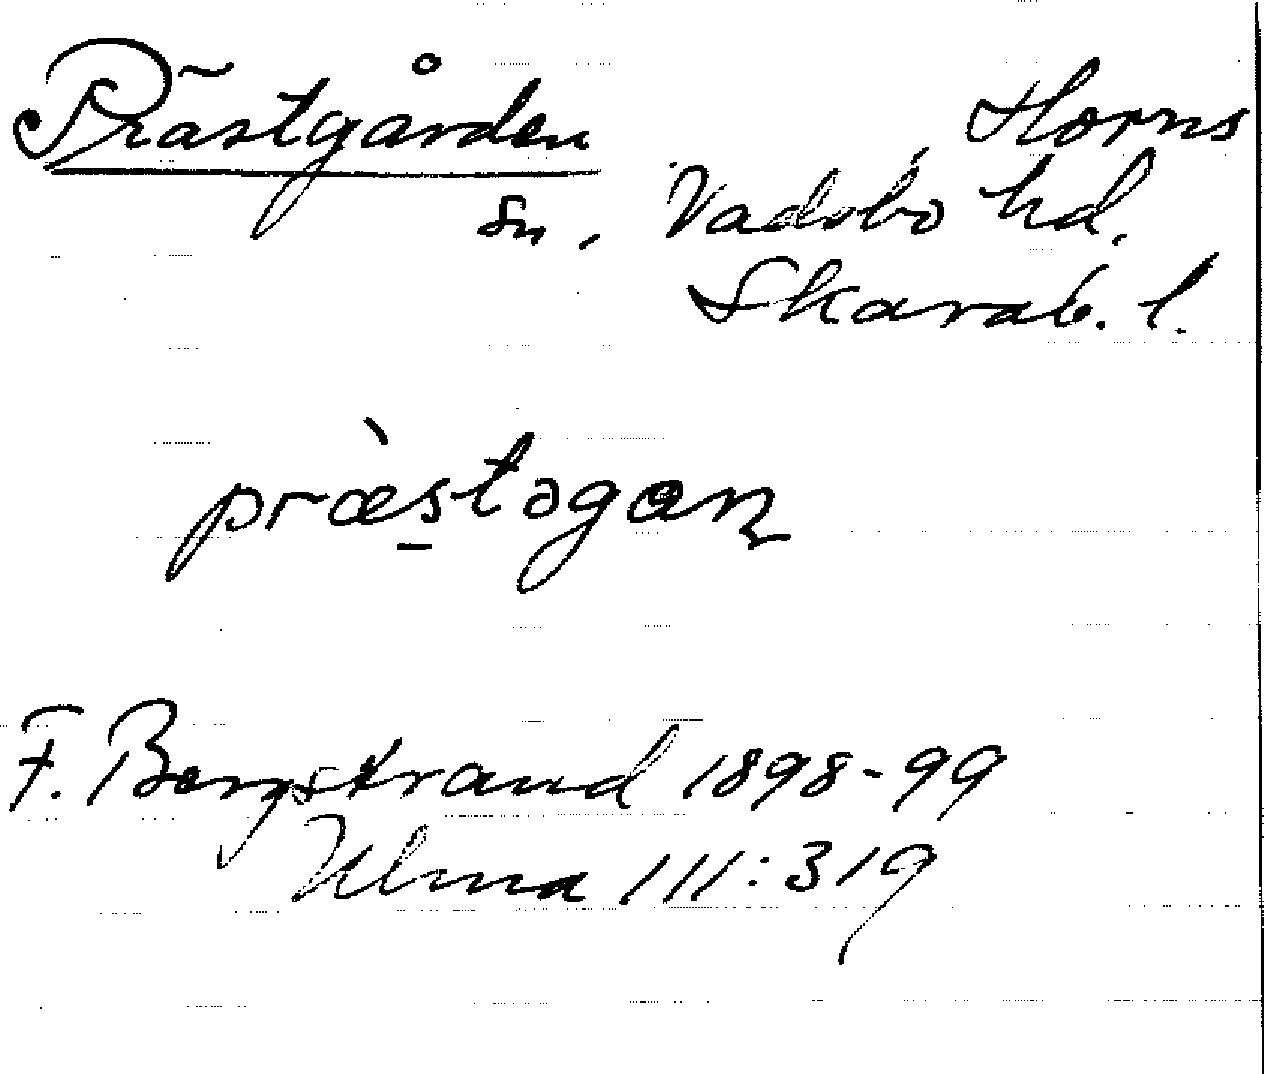 Prästgården Horns
sn, Vadsbo hd.
Skarab. l.
præ̀stəgan
F. Bergstrand 1898-99
Ulma 111:319